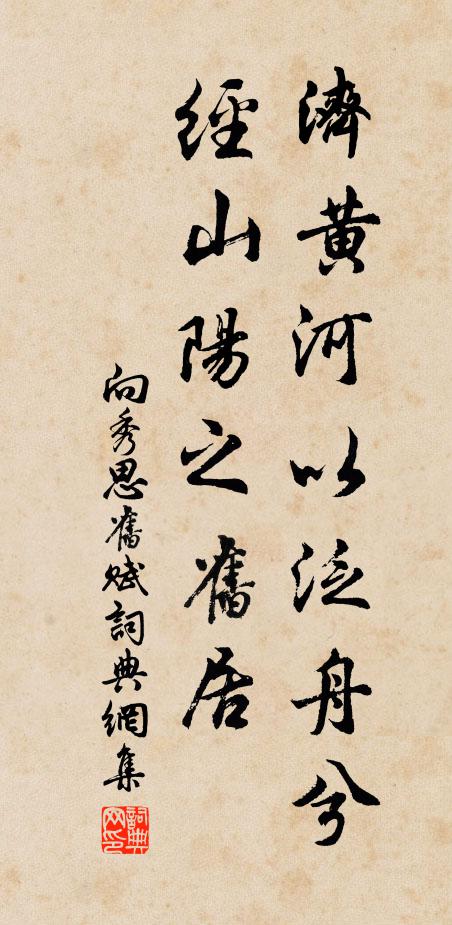 濟黄河以泛舟兮
經山陽之舊居
向秀思舊賦詞典網集
詞典網印